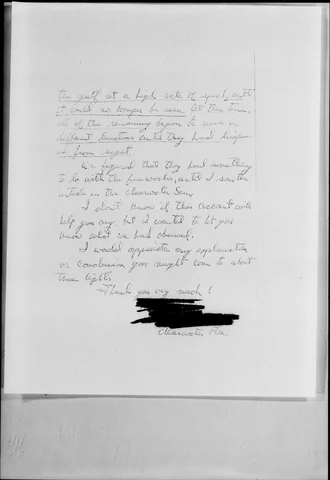 The gulf at a high rate of speed, until
it could no longer be seen. At this time,
all of the remaining began to move in
different directions until they had disappear-
ed from sight.
We figured that they had something
to do with the fireworks, until I saw the
article in the Clearwater Sun.
I don't know if this account will
help you any but I wanted to let you
know what we had observed.
I would appreciate any explanation
or conclusion you might come to about
these lights.
Thank you very much!
Clearwater, Fla.